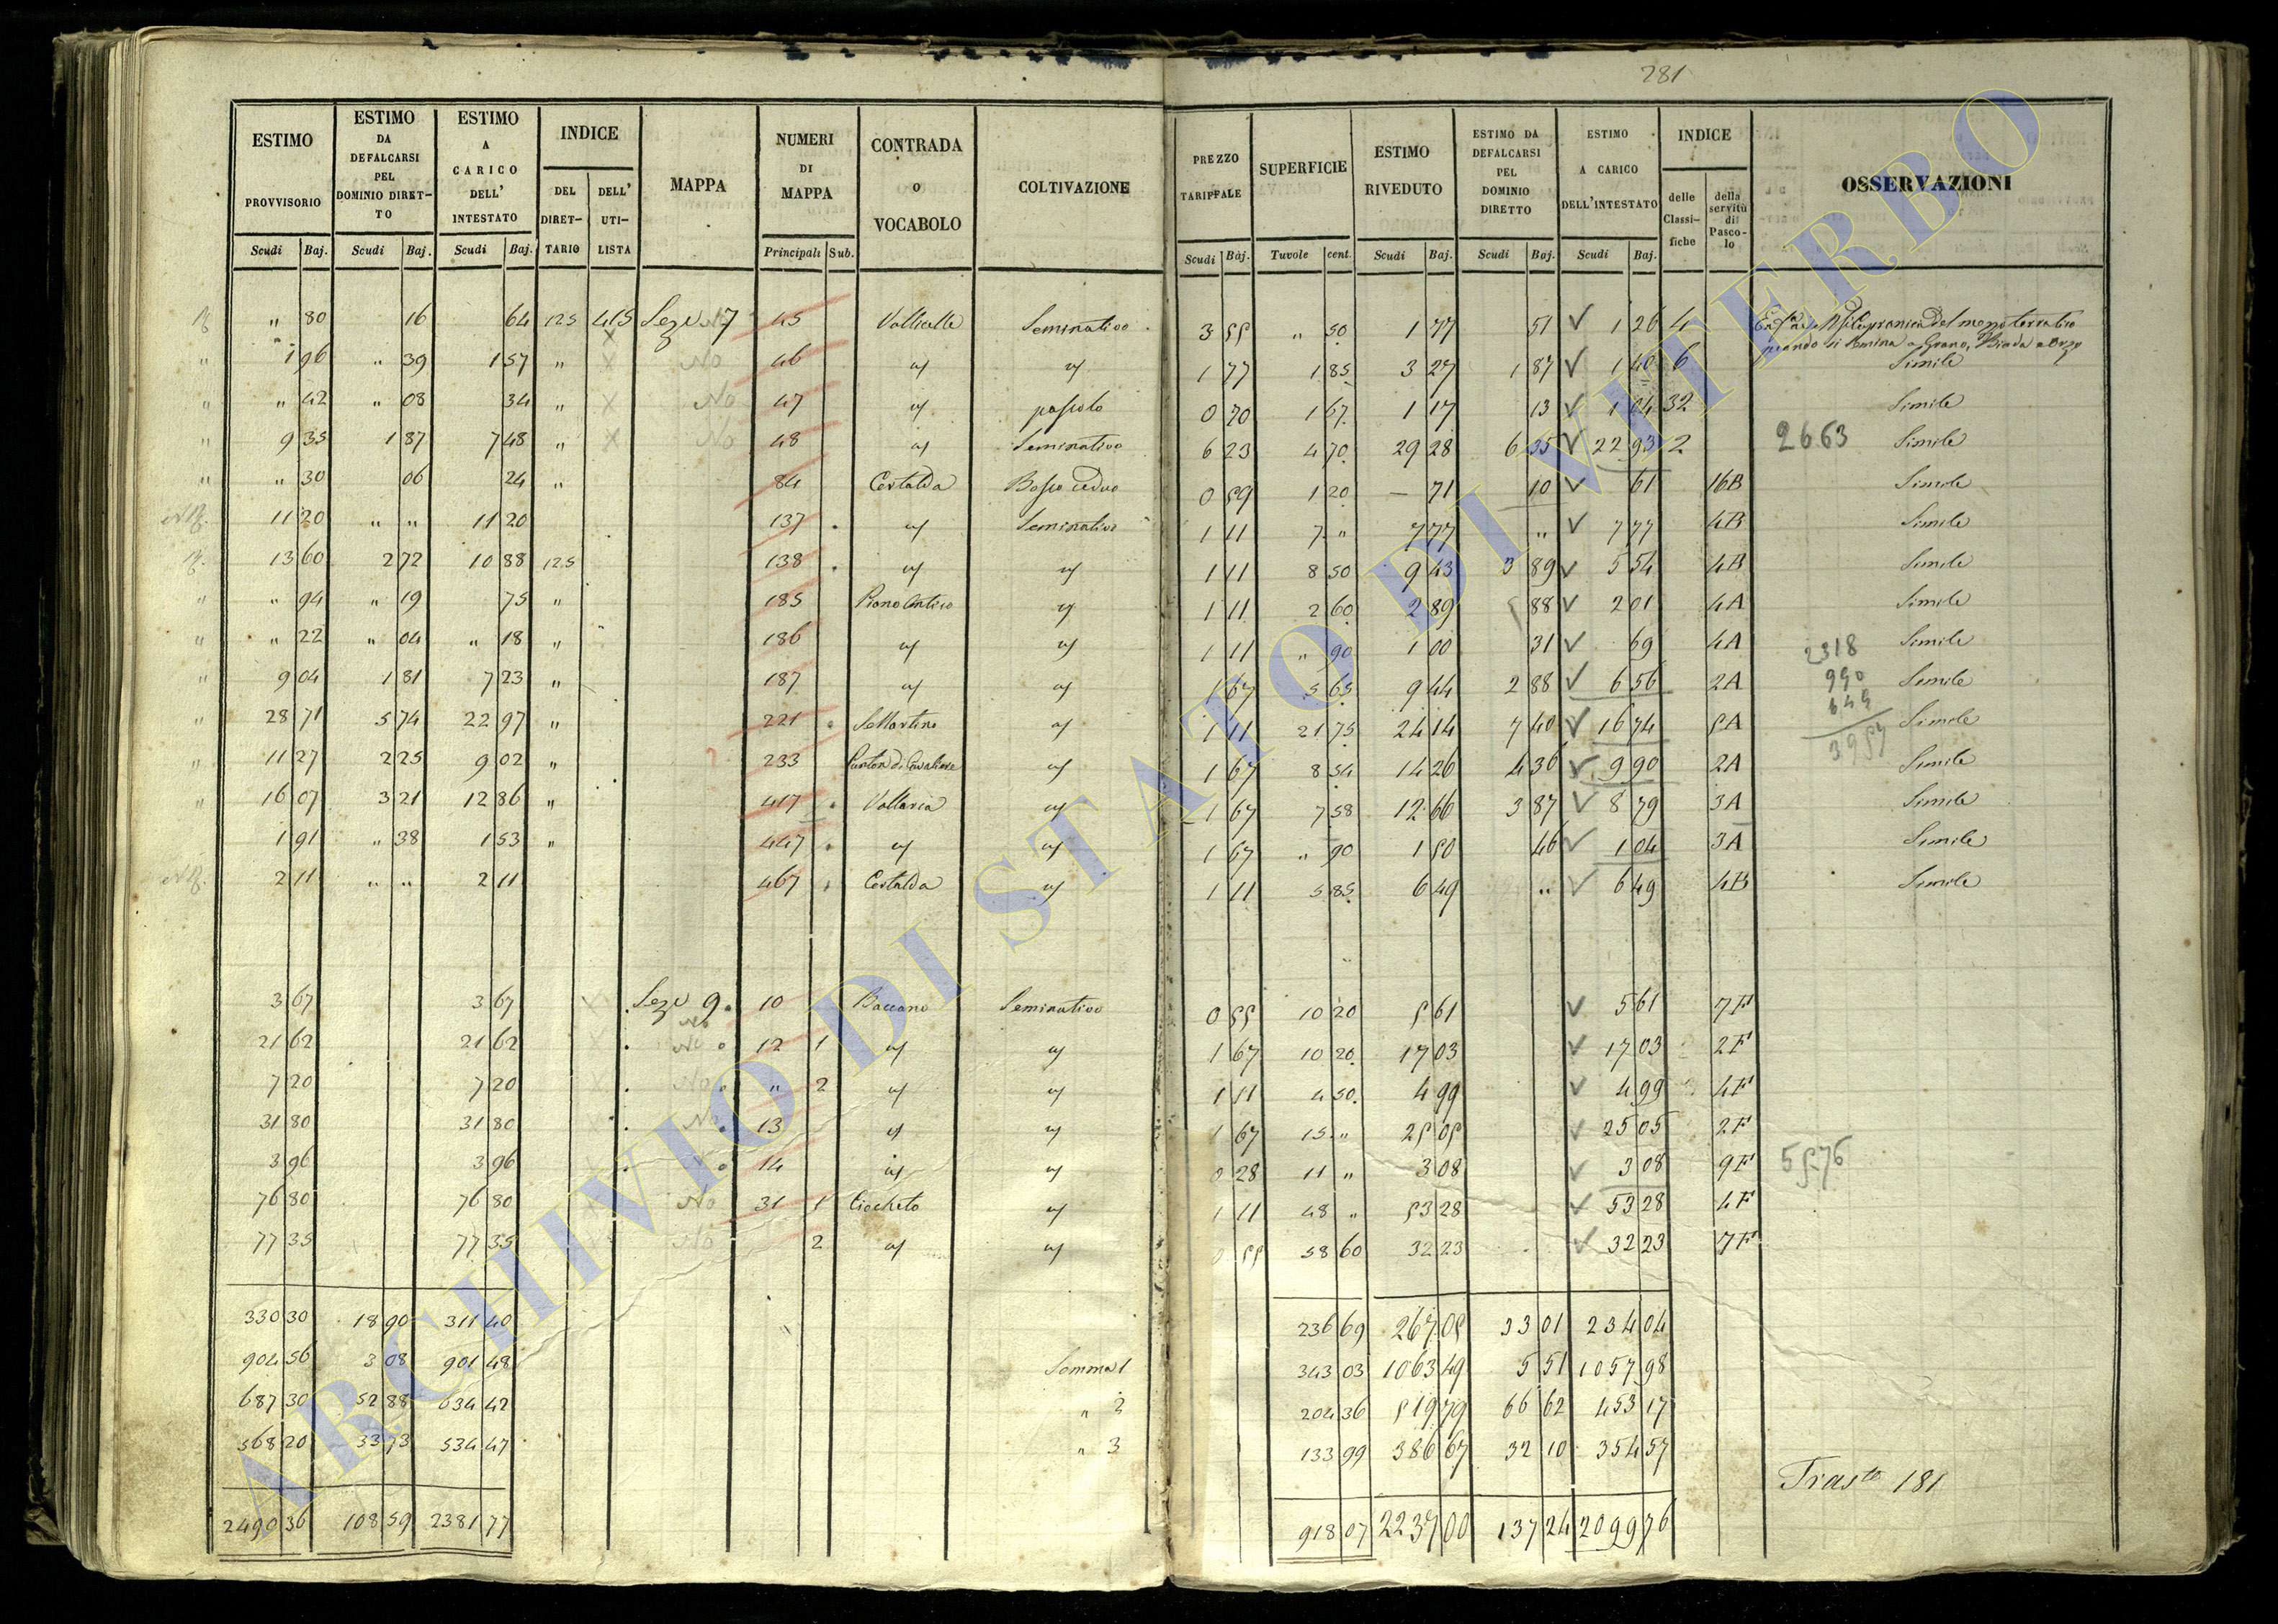 281
ESTIMO PROVVISORIO Scudi Baj. | ESTIMO DA DEFALCARSI PEL DOMINIO DIRETTO Scudi Baj. | ESTIMO A CARICO DELL' INTESTATO Scudi Baj. | INDICE DEL DIRETTARIO DELL' UTILISTA | MAPPA | NUMERI DI MAPPA Principali Sub. | CONTRADA O VOCABOLO | COLTIVAZIONE | PREZZO TARIFFALE Scudi Baj. | SUPERFICIE Tavole cent. | ESTIMO RIVEDUTO Scudi Baj. | ESTIMO DA DEFALCARSI PEL DOMINIO DIRETTO Scudi Baj. | ESTIMO A CARICO DELL'INTESTATO Scudi Baj. | INDICE delle Classifiche della servitù di Pascolo | OSSERVAZIONI
" 80 | 16 | 64 | 125 | 415 | Sez. 7 | 45 | Vallicelle | Seminativo | 3 55 | " 50 | 1 77 | 51 | 1 26 | 4
1 96 | " 39 | 1 57 | " | No | 46 | 1 77 | 1 85 | 3 27 | 1 87 | 1 40 | 6 | Simile
" 42 | " 08 | 34 | " | No | 47 | pascolo | 0 70 | 1 67 | 1 17 | 13 | 1 04 | 32 | Simile
9 35 | 1 87 | 7 48 | " | No | 48 | Seminativo | 6 23 | 4 70 | 29 28 | 6 35 | 22 93 | 2 | 2663 Simile
" 30 | 06 | 24 | " | 84 | Certalda | Bosco ceduo | 0 59 | 1 20 | — 71 | 10 | 61 | 16B | Simile
11 20 | " " | 11 20 | 137 | Seminativo | 1 11 | 7 " | 7 77 | " | 7 77 | 4B | Simile
13 60 | 2 72 | 10 88 | 125 | 138 | 1 11 | 8 50 | 9 43 | 3 89 | 5 54 | 4B | Simile
" 94 | " 19 | 75 | " | 185 | Piano | 1 11 | 2 60 | 2 89 | 88 | 2 01 | 4A | Simile
" 22 | " 04 | " 18 | " | 186 | 1 11 | " 90 | 1 00 | 31 | 69 | 4A | 2318 Simile
9 04 | 1 81 | 7 23 | " | 187 | 1 67 | 5 65 | 9 44 | 2 88 | 6 56 | 2A | 990 Simile
28 71 | 5 74 | 22 97 | " | 221 | S. Martino | 1 11 | 21 75 | 24 14 | 7 40 | 16 74 | 5A | 649 Simile
11 27 | 2 25 | 9 02 | " | 233 | 1 67 | 8 54 | 14 26 | 4 36 | 9 90 | 2A | 3957 Simile
16 07 | 3 21 | 12 86 | " | 417 | Vallaria | 1 67 | 7 58 | 12 66 | 3 87 | 8 79 | 3A | Simile
1 91 | " 38 | 1 53 | " | 447 | 1 67 | " 90 | 1 50 | 46 | 1 04 | 3A | Simile
2 11 | " " | 2 11 | 467 | Certalda | 1 11 | 5 85 | 6 49 | " | 6 49 | 4B | Simile
3 67 | 3 67 | Sez. 9 | 10 | Baccano | Seminativo | 0 55 | 10 20 | 5 61 | 5 61 | 7F
21 62 | 21 62 | No | 12 | 1 | 1 67 | 10 20 | 17 03 | 17 03 | 2F
7 20 | 7 20 | No | " | 2 | 1 11 | 4 50 | 4 99 | 4 99 | 4F
31 80 | 31 80 | No | 13 | 1 67 | 15 " | 25 05 | 25 05 | 2F
3 96 | 3 96 | 14 | 0 28 | 11 " | 3 08 | 3 08 | 9F | 5576
76 80 | 76 80 | No | 31 | 1 | Ciocheto | 1 11 | 48 " | 53 28 | 53 28 | 4F
77 35 | 77 35 | No | 2 | 0 55 | 58 60 | 32 23 | 32 23 | 7F
330 30 | 18 90 | 311 40 | 236 69 | 267 05 | 33 01 | 234 04
904 56 | 3 08 | 901 48 | Somma 1 | 343 03 | 1063 49 | 5 51 | 1057 98
687 30 | 52 88 | 634 42 | " 2 | 204 36 | 519 79 | 66 62 | 453 17
568 20 | 33 73 | 534 47 | " 3 | 133 99 | 386 67 | 32 10 | 354 57
Trasto 181
2490 36 | 108 59 | 2381 77 | 918 07 | 2237 00 | 137 24 | 2099 76
ARCHIVIO DI STATO DI VITERBO